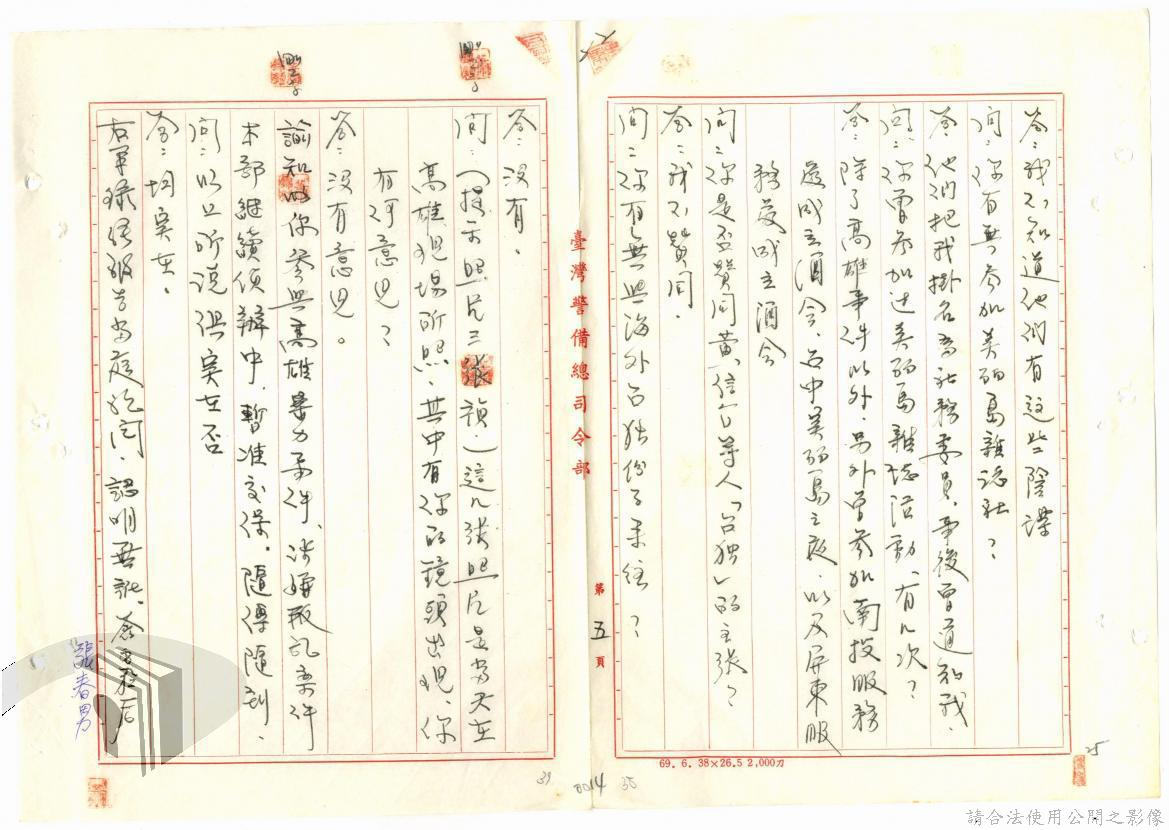 答：我不知道他们有这些陰謀
問：你有無參加美丽島雜誌社？
答：他们把我掛名为社務委員，事後曾道知我.
問：你曾参加过美丽島雜誌活動、有几次？
答：除了高雄事件以外.另外曾参加南投服務
處成立酒会、台中美丽島之夜、以及屏東服
務處成立酒会
問：你是否贊同黃信介等人「台独」的主張？
答：我不贊同.
問：你有無與海外台独份子来往？
臺灣警備總司令部
第五頁
69. 6. 38×26.5 2,000刀
25
答：没有.
問：（提示照片三張
）這几張照片是当天在
高雄現場所照、其中有你的鏡頭出現、你
有何意見？
答：没有意見。
諭知以你參與高雄暴力案件、涉嫌叛乱案件
本部繼續偵辦中，暫准交保.隨傳隨到.
問：以上所說俱实在否
答：均实在.
右筆錄經
当庭
認明無訛、
張春男
39
0014
38
請合法使用公開之影像